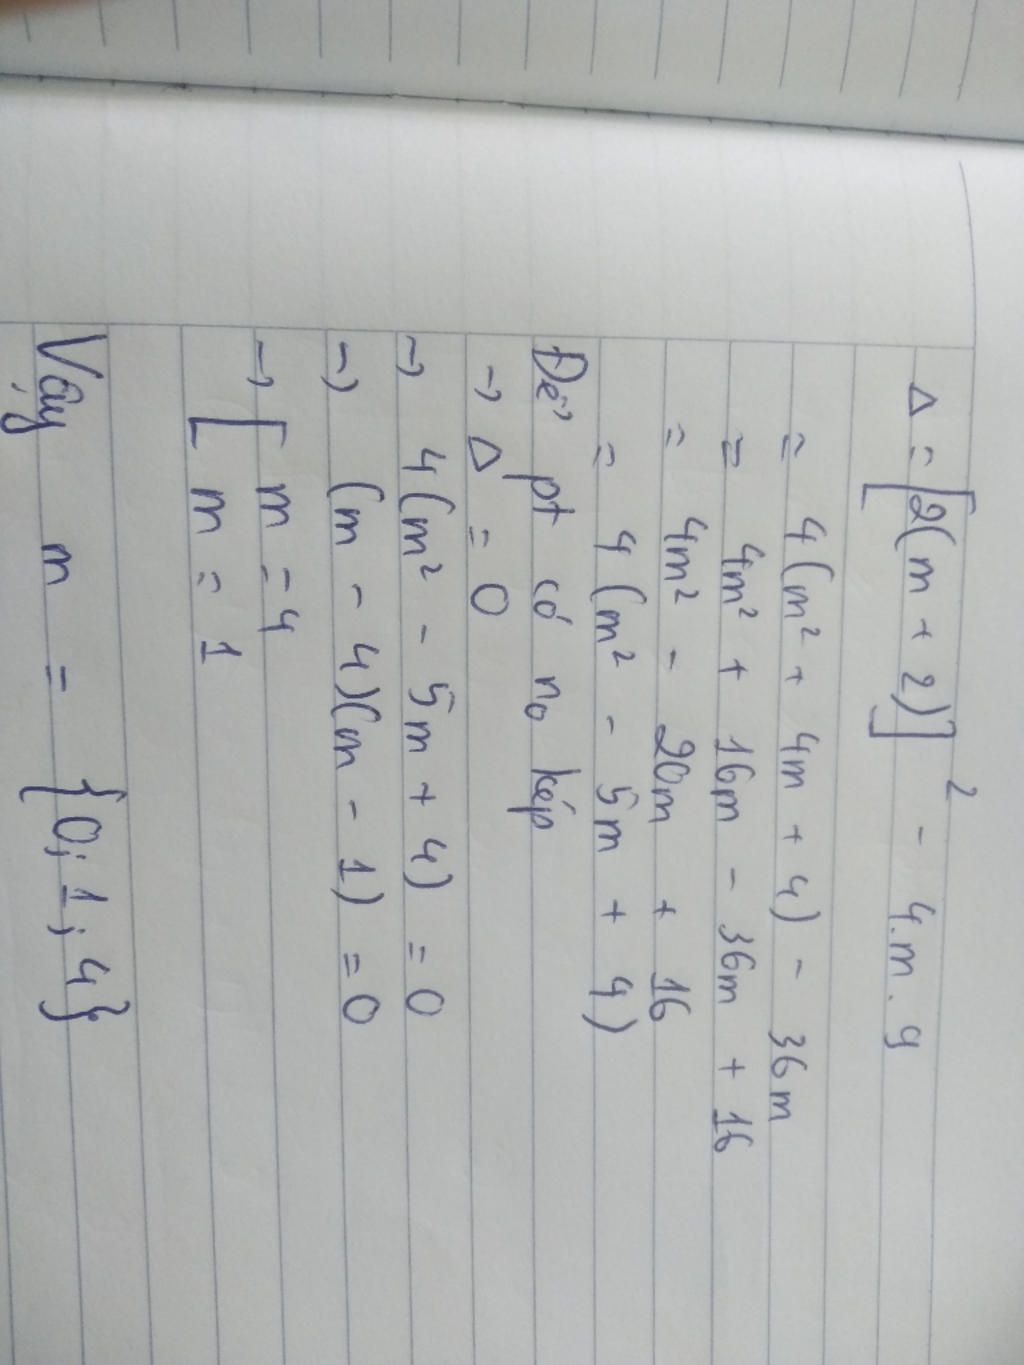 Δ = [2(m + 2)]² - 4.m.9
= 4(m² + 4m + 4) - 36m
= 4m² + 16m - 36m + 16
= 4m² - 20m + 16
= 4(m² - 5m + 4)
Để pt có no kép
→ Δ = 0
→ 4(m² - 5m + 4) = 0
→ (m - 4)(m - 1) = 0
→ [ m = 4
[ m = 1
Vậy m = {0; 1; 4}